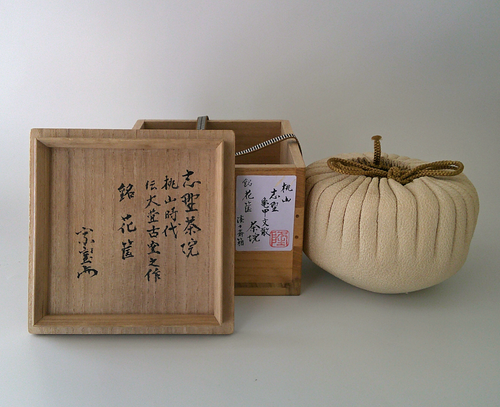 志野茶碗
桃山時代
伝大萱古窯之作
銘 花筐
桃山
志野
亀甲文
茶碗
銘 花筐